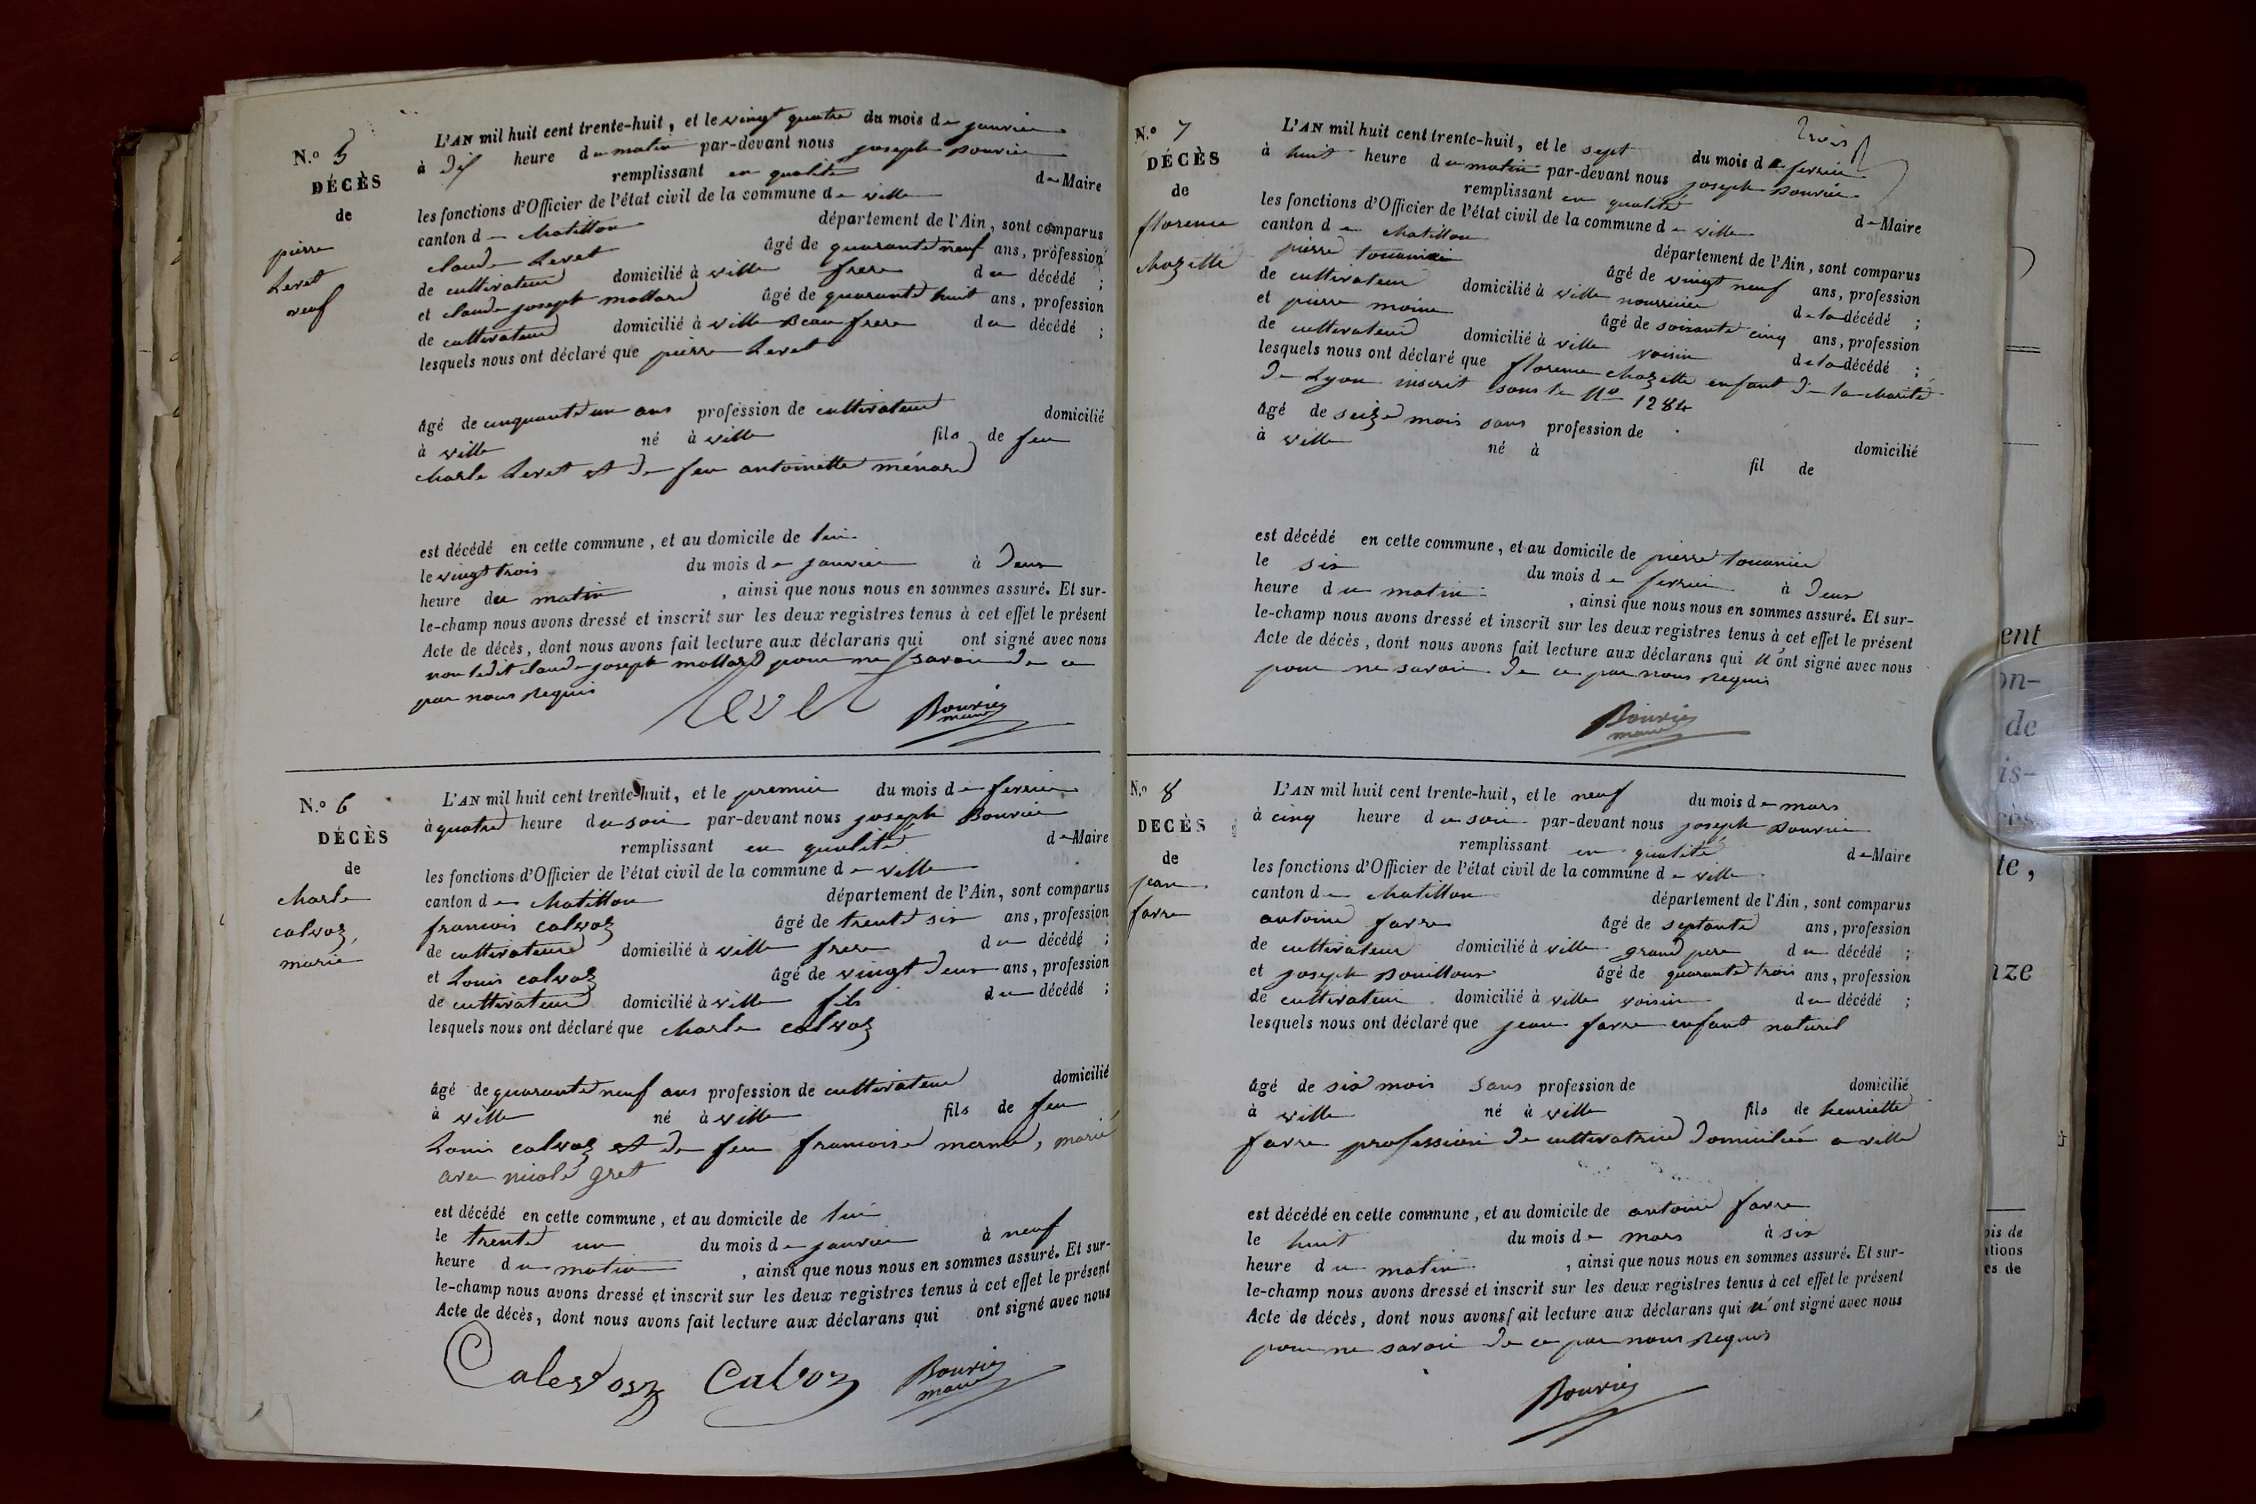 N.o 5
DÉCÈS
de
pierre
Levet
neuf
L'AN mil huit cent trente-huit, et le vingt quatre du mois de janvier
à dix heure du matin par-devant nous joseph Bouvier
remplissant en qualité de Maire
les fonctions d'Officier de l'état civil de la commune de ville
canton de chatillon département de l'Ain, sont comparus
claude Levet âgé de quarante neuf ans, profession
de cultivateur domicilié à ville frere du décédé ;
et claude joseph mollard âgé de quarante huit ans, profession
de cultivateur domicilié à ville Beau frere du décédé ;
lesquels nous ont déclaré que pierre Levet
âgé de cinquante un ans profession de cultivateur domicilié
à ville né à ville fils de feu
charle Levet et de feu antoinette ménard
est décédé en cette commune, et au domicile de lui
le vingt trois du mois de janvier à deux
heure du matin , ainsi que nous nous en sommes assuré. Et sur-
le-champ nous avons dressé et inscrit sur les deux registres tenus à cet effet le présent
Acte de décès, dont nous avons fait lecture aux déclarans qui ont signé avec nous
non ledit claude joseph mollard pour ne savoir de ce
par nous Requis
Levet Bouvier
maire
N.o 6
DÉCÈS
de
charle
calvoz,
marié
L'AN mil huit cent trente-huit, et le premier du mois de fevrier
à quatre heure du soir par-devant nous joseph Bouvier
remplissant en qualité de Maire
les fonctions d'Officier de l'état civil de la commune de ville
canton de chatillon département de l'Ain, sont comparus
francois calvoz âgé de trente six ans, profession
de cultivateur domicilié à ville frere du décédé ;
et Louis calvoz âgé de vingt deux ans, profession
de cultivateur domicilié à ville fils du décédé ;
lesquels nous ont déclaré que charle calvoz
âgé de quarante neuf ans profession de cultivateur domicilié
à ville né à ville fils de feu
Louis calvoz et de feu francoise , marié
avec nicole gret
est décédé en cette commune, et au domicile de lui
le trente un du mois de janvier à neuf
heure du matin , ainsi que nous nous en sommes assuré. Et sur-
le-champ nous avons dressé et inscrit sur les deux registres tenus à cet effet le présent
Acte de décès, dont nous avons fait lecture aux déclarans qui ont signé avec nous
Calvoz Bouvier
maire
trois
N.o 7
DÉCÈS
de
florence
chozette
L'AN mil huit cent trente-huit, et le sept du mois de fevrier
à huit heure du matin par-devant nous joseph Bouvier
remplissant en qualité de Maire
les fonctions d'Officier de l'état civil de la commune de ville
canton de chatillon département de l'Ain, sont comparus
pierre âgé de vingt neuf ans, profession
de cultivateur domicilié à ville nourricier de la décédé ;
et pierre moine âgé de soixante cinq ans, profession
de cultivateur domicilié à ville voisin de la décédé ;
lesquels nous ont déclaré que florence chozette enfant de la charité
de Lyon inscrit sous le No 1284
âgé de seize mois sans profession de
à ville né à domicilié
fil de
est décédé en cette commune, et au domicile de pierre
le six du mois de fevrier à deux
heure du matin , ainsi que nous nous en sommes assuré. Et sur-
le-champ nous avons dressé et inscrit sur les deux registres tenus à cet effet le présent
Acte de décès, dont nous avons fait lecture aux déclarans qui n'ont signé avec nous
pour ne savoir de ce par nous Requis
Bouvier
maire
N.o 8
DECÈS
de
jean
favre
L'AN mil huit cent trente-huit, et le neuf du mois de mars
à cinq heure du soir par-devant nous joseph Bouvier
remplissant en qualité de Maire
les fonctions d'Officier de l'état civil de la commune de ville
canton de chatillon département de l'Ain, sont comparus
antoine favre âgé de septante ans, profession
de cultivateur domicilié à ville grand pere du décédé ;
et joseph Bouilloux âgé de quarante trois ans, profession
de cultivateur domicilié à ville voisin du décédé ;
lesquels nous ont déclaré que jean favre enfant naturel
âgé de six mois sans profession de domicilié
à ville né à ville fils de henriette
favre profession de cultivatrice domiciliée a ville
est décédé en cette commune, et au domicile de antoine favre
le huit du mois de mars à six
heure du matin , ainsi que nous nous en sommes assuré. Et sur-
le-champ nous avons dressé et inscrit sur les deux registres tenus à cet effet le présent
Acte de décès, dont nous avons fait lecture aux déclarans qui n'ont signé avec nous
pour ne savoir de ce par nous Requis
Bouvier